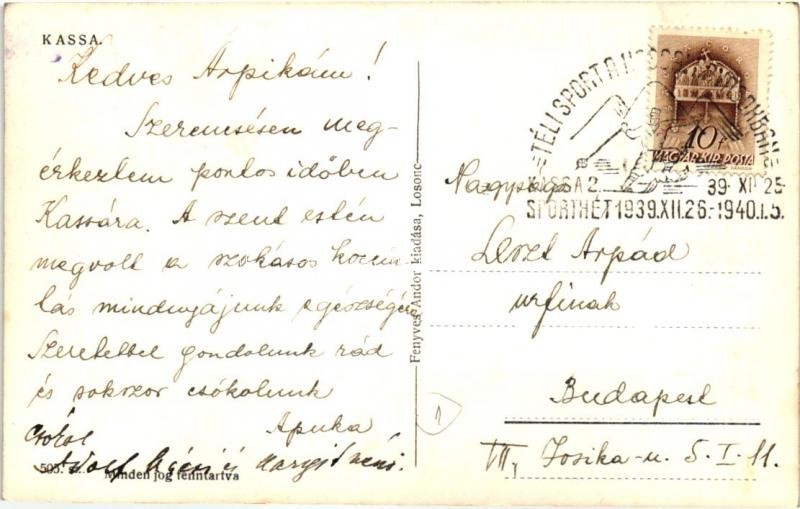 KASSA.
Kedves Árpikám!
Szerencsésen meg-
érkeztem pontos időben
Kassára. A szent estén
megvolt a szokásos koccin-
tás mindnyájunk egészségére
Szeretettel gondolunk rád
és sokszor csókolunk
Apuka
Csókol
Adolf bácsi és Margit néni.
505. sz.
Minden jog fenntartva
Fenyves Andor kiadása, Losonc
10f
MAGYAR KIR. POSTA
TÉLI SPORT A
KASSA 2. 39 XII 25
SPORTHÉT 1939.XII.26.-1940.I.5.
Nagyságos
Leszt Árpád
urfinak
Budapest
VII, Josika-u. 5. I. 11.
1